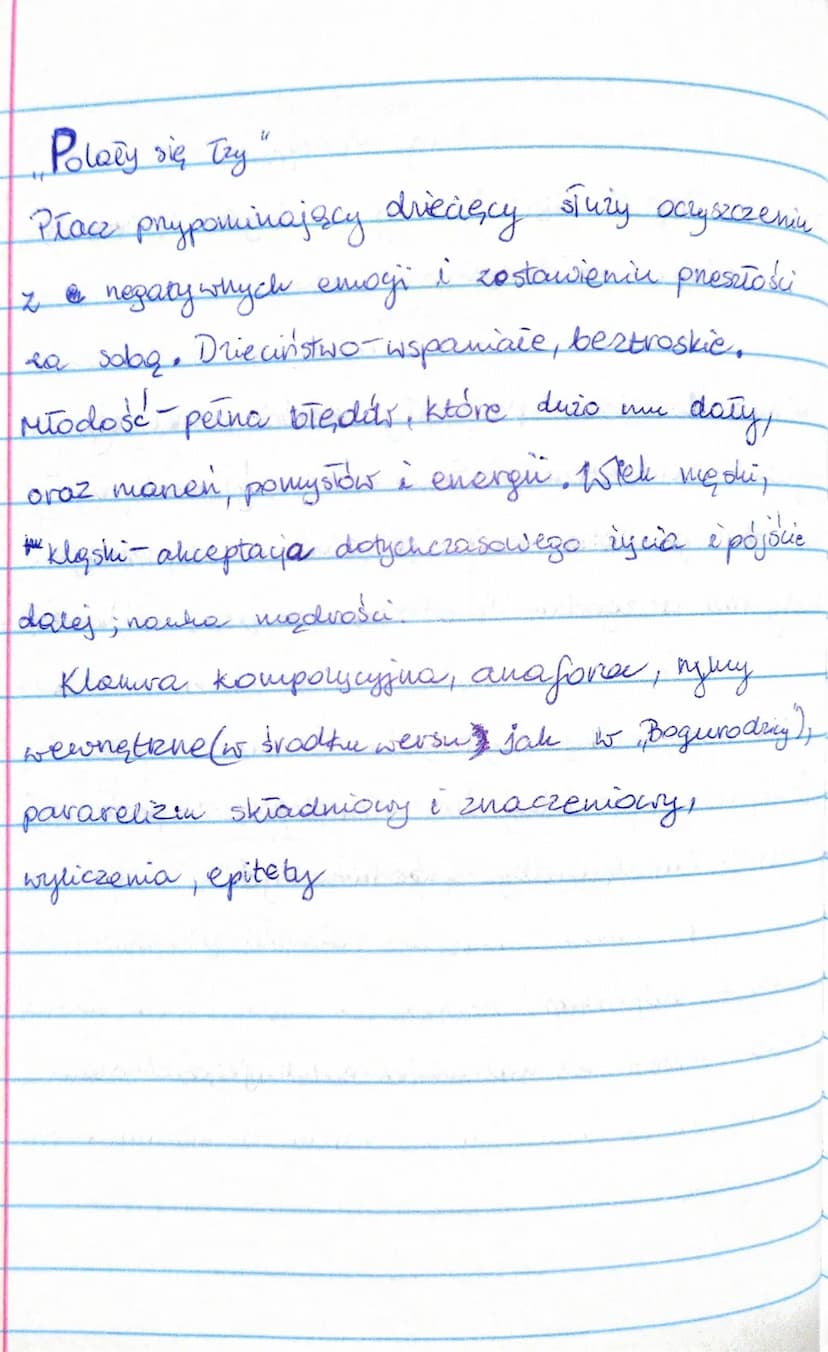 „Polały się łzy"
Płacz przypominający dziecięcy służy oczyszczeniu
z negatywnych emocji i zostawieniu przeszłości
za sobą. Dzieciństwo - wspaniałe, beztroskie.
Młodość - pełna błędów, które dużo mu dały,
oraz marzeń, pomysłów i energii. Wiek męski,
klęski - akceptacja dotychczasowego życia i pójście
dalej; nauka mądrości.
Klamra kompozycyjna, anafora, rymy
wewnętrzne (w środku wersu jak w „Bogurodzicy"),
pararelizm składniowy i znaczeniowy,
wyliczenia, epitety